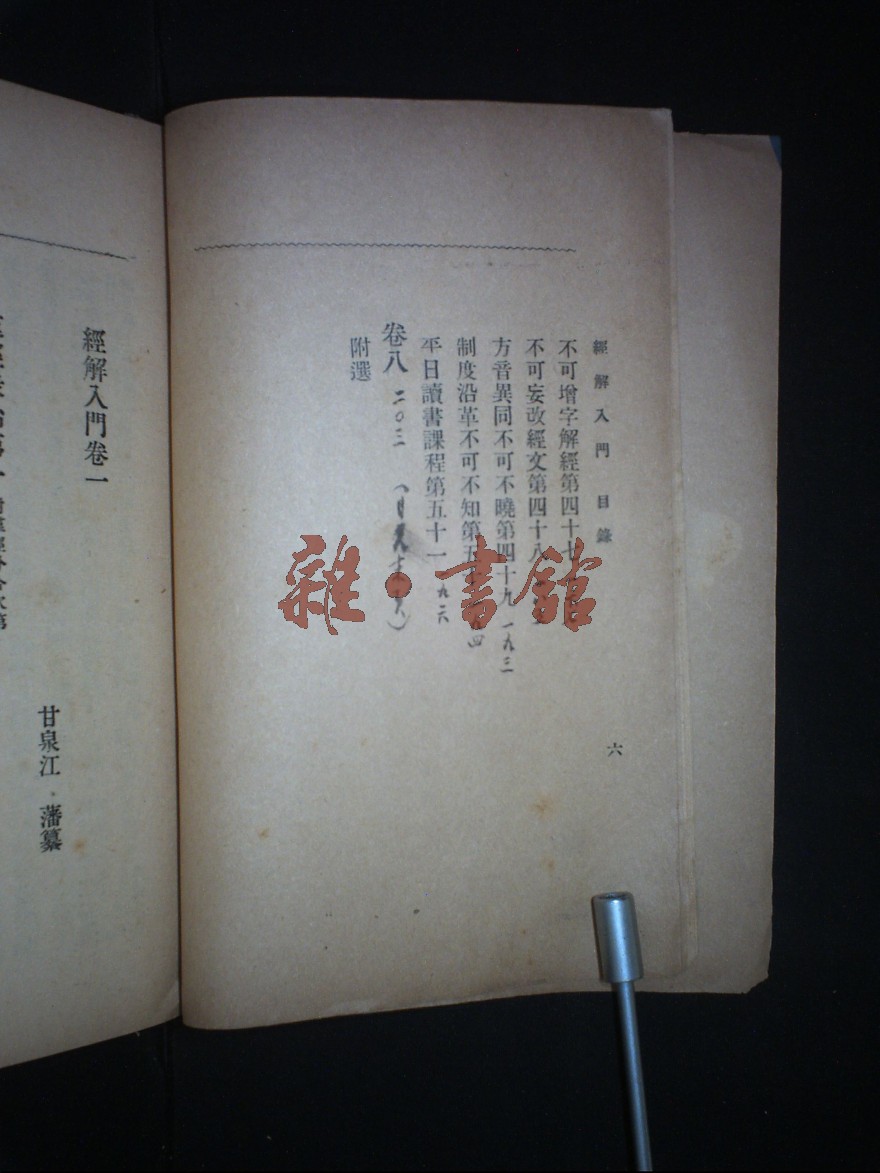 經解入門 目錄
不可增字解經第四十七
不可妄改經文第四十八
方音異同不可不曉第四十九 一九三
制度沿革不可不知第五
平日讀書課程第五十一 一九六
卷八 二〇三
附選
六
經解入門卷一
甘泉江 藩纂
雜·書館